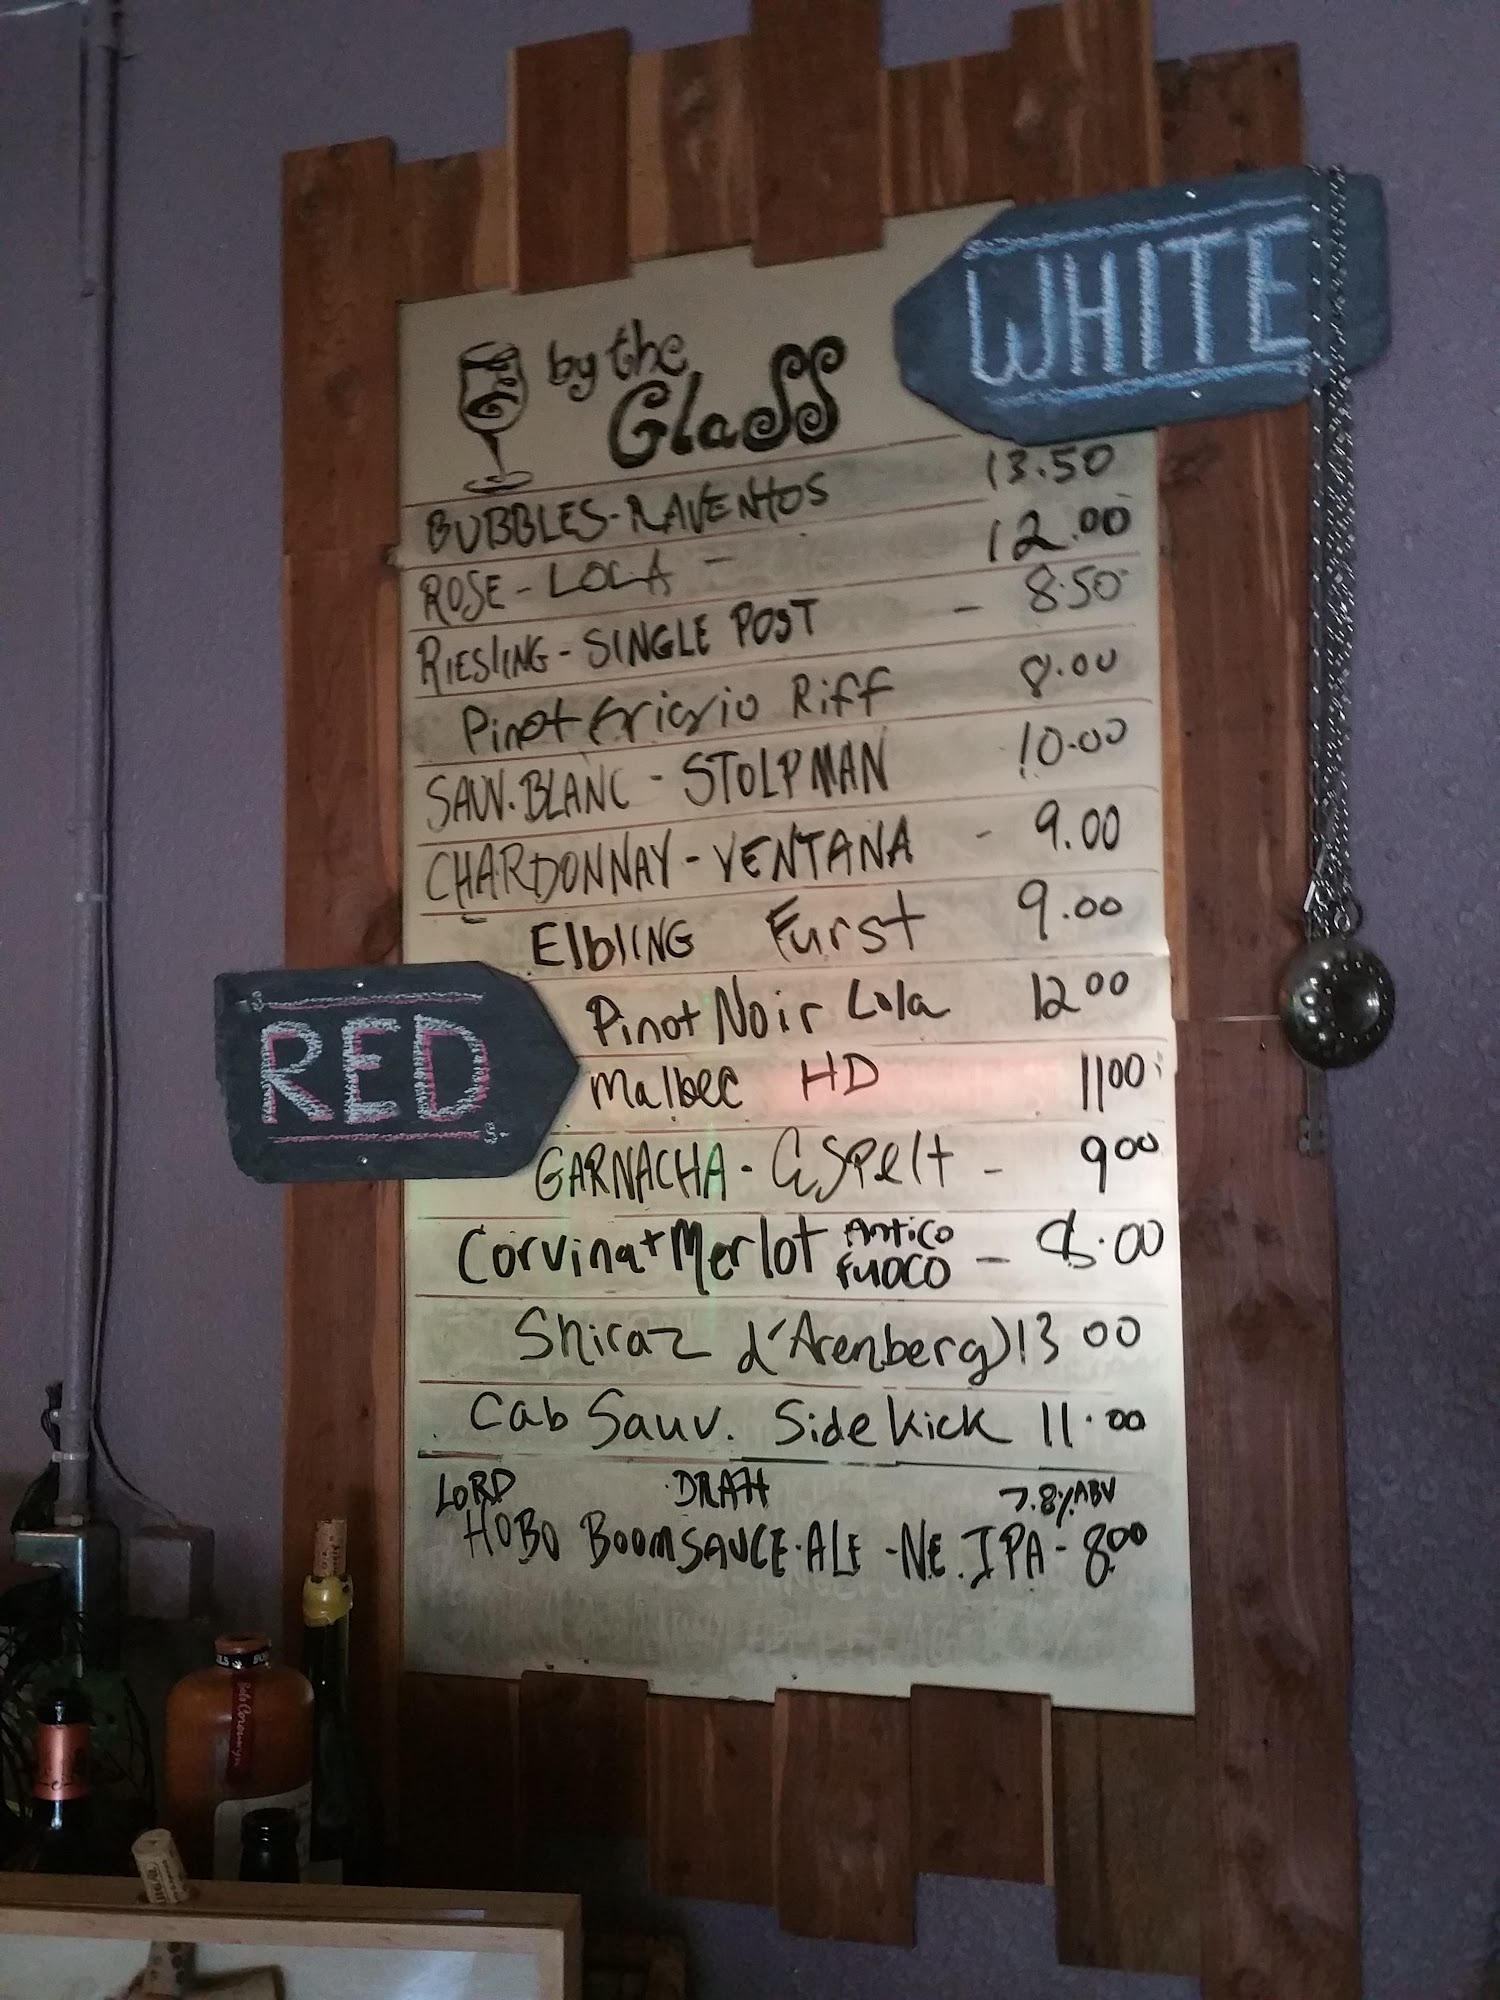 WHITE
by the
Glass
BUBBLES-RAVENTOS 13.50
ROSE - LOLA - 12.00
RIESLING - SINGLE POST - 8.50
Pinot Grigrio Riff 8.00
SAUV. BLANC - STOLPMAN 10.00
CHARDONNAY - VENTANA - 9.00
ElblING Furst 9.00
RED
Pinot Noir Lola 12 00
Malbec HD 11 00
GARNACHA - Espelt - 9 00
Corvina + Merlot Antico
Fuoco - 8.00
Shiraz d'Arenberg) 13 00
Cab Sauv. Side kick 11.00
LORD DRAFT 7.8% ABV
HOBO BOOMSAUCE-ALE - NE. IPA - 8.00